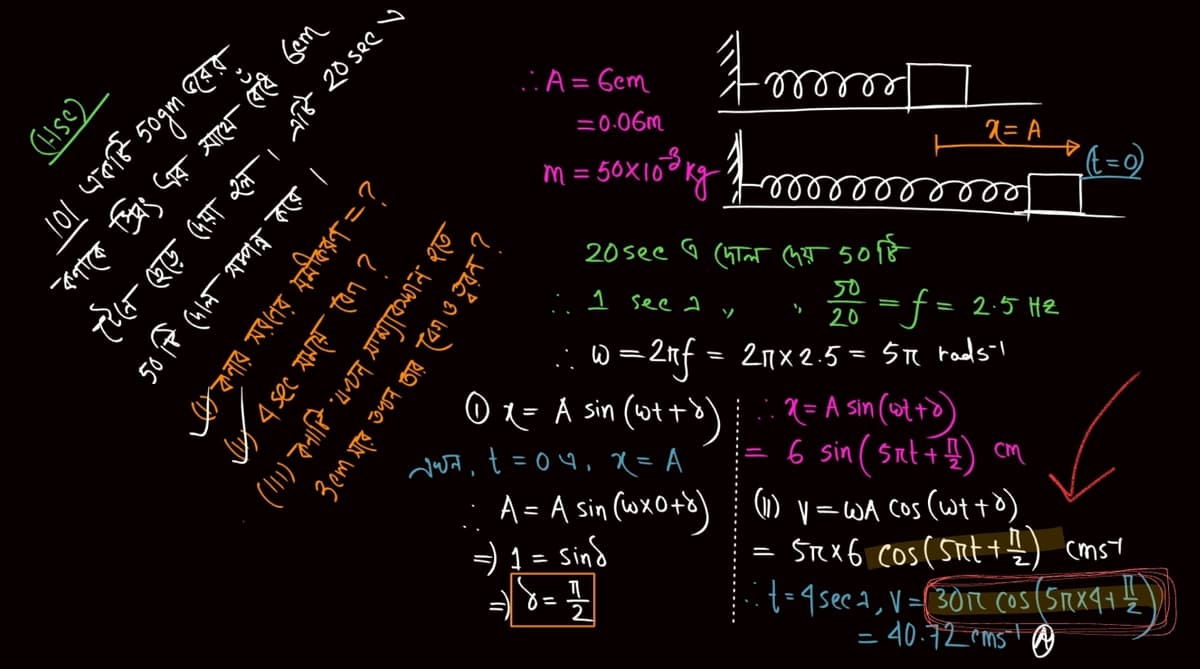 (HSC)
101 একটি 50gm ভরের
কণাকে স্প্রিং এর সাথে বেঁধে 6cm
টেনে ছেড়ে দেয়া হল। এটি 20 sec এ
50 টি দোল সম্পন্ন করে।
(i) কনার সরনের সমীকরণ = ?
(ii) 4 sec সময়ে বেগ ?
(iii) কনাটি যখন সাম্যাবস্থান হতে
3cm যায় তখন তার বেগ ও ত্বরন ?
∴ A = 6cm
= 0.06m
m = 50×10⁻³ kg
x = A
(t=0)
20 sec এ দোল দেয় 50 টি
∴ 1 sec এ ,, ,, 50/20 = f = 2.5 Hz
∴ ω = 2πf = 2π × 2.5 = 5π rads⁻¹
① x = A sin (ωt + δ)
এখন, t = 0 এ, x = A
∴ A = A sin (ω×0+δ)
⇒ 1 = sinδ
⇒ δ = π/2
∴ x = A sin (ωt+δ)
= 6 sin (5πt + π/2) cm
(ii) v = ωA cos (ωt+δ)
= 5π×6 cos (5πt + π/2) cms⁻¹
∴ t = 4 sec এ, v = 30π cos (5π×4+π/2)
= 40.72 cms⁻¹ (A)